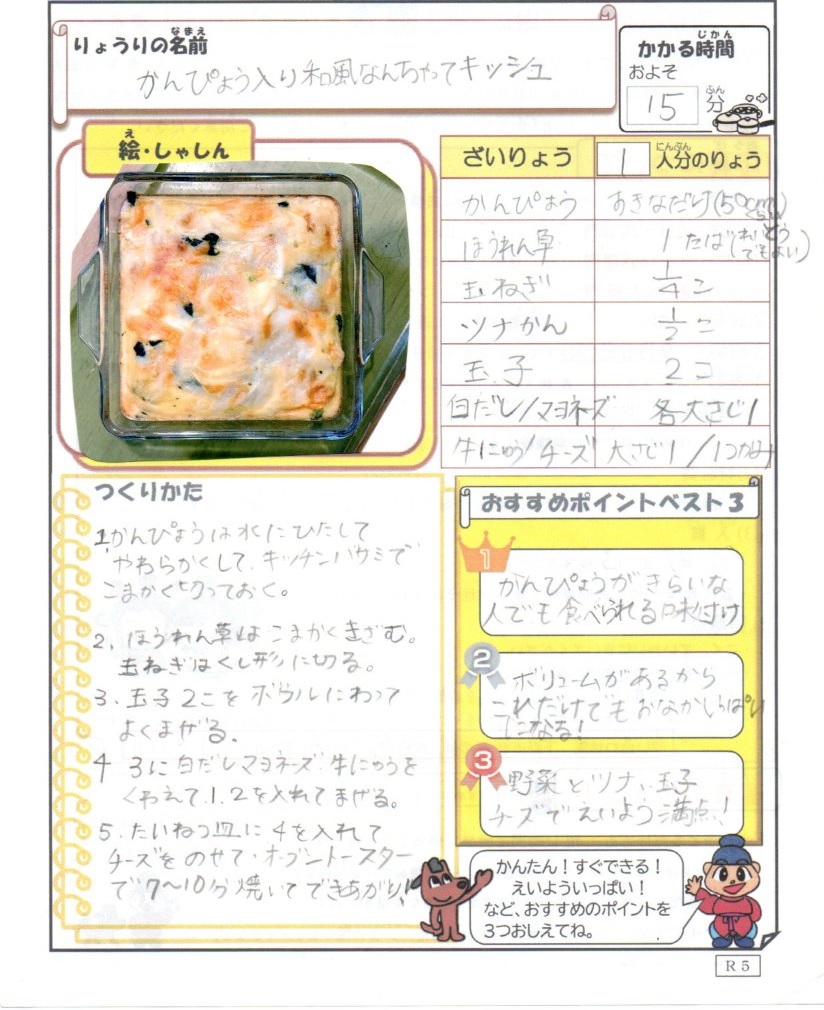 りょうりの名前
なまえ
かんぴょう入り和風なんちゃってキッシュ
かかる時間
じかん
およそ
15分
ふん
絵・しゃしん
え
ざいりょう 1人分のりょう
にんぶん
かんぴょう すきなだけ(50cmくらい)
ほうれん草 1たば(れいとうでもよい)
玉ねぎ 1/4こ
ツナかん 1/2こ
玉子 2コ
白だし/マヨネーズ 各大さじ1
牛にゅう/チーズ 大さじ1/1つかみ
つくりかた
1.かんぴょうは水にひたして
やわらかくして、キッチンバサミで
こまかく切っておく。
2.ほうれん草はこまかくきざむ。
玉ねぎはくし形に切る。
3.玉子2こをボウルにわって
よくまぜる。
4 3に白だしマヨネーズ牛にゅうを
くわえて、1.2を入れてまぜる。
5.たいねつ皿に4を入れて
チーズをのせて・オーブントースター
で7〜10分焼いてできあがり!
おすすめポイントベスト3
1
かんぴょうがきらいな
人でも食べられる味付け
2
ボリュームがあるから
これだけでもおなかいっぱい
になる!
3
野菜とツナ、玉子
チーズでえいよう満点!
かんたん!すぐできる!
えいよういっぱい!
など、おすすめのポイントを
3つおしえてね。
R5